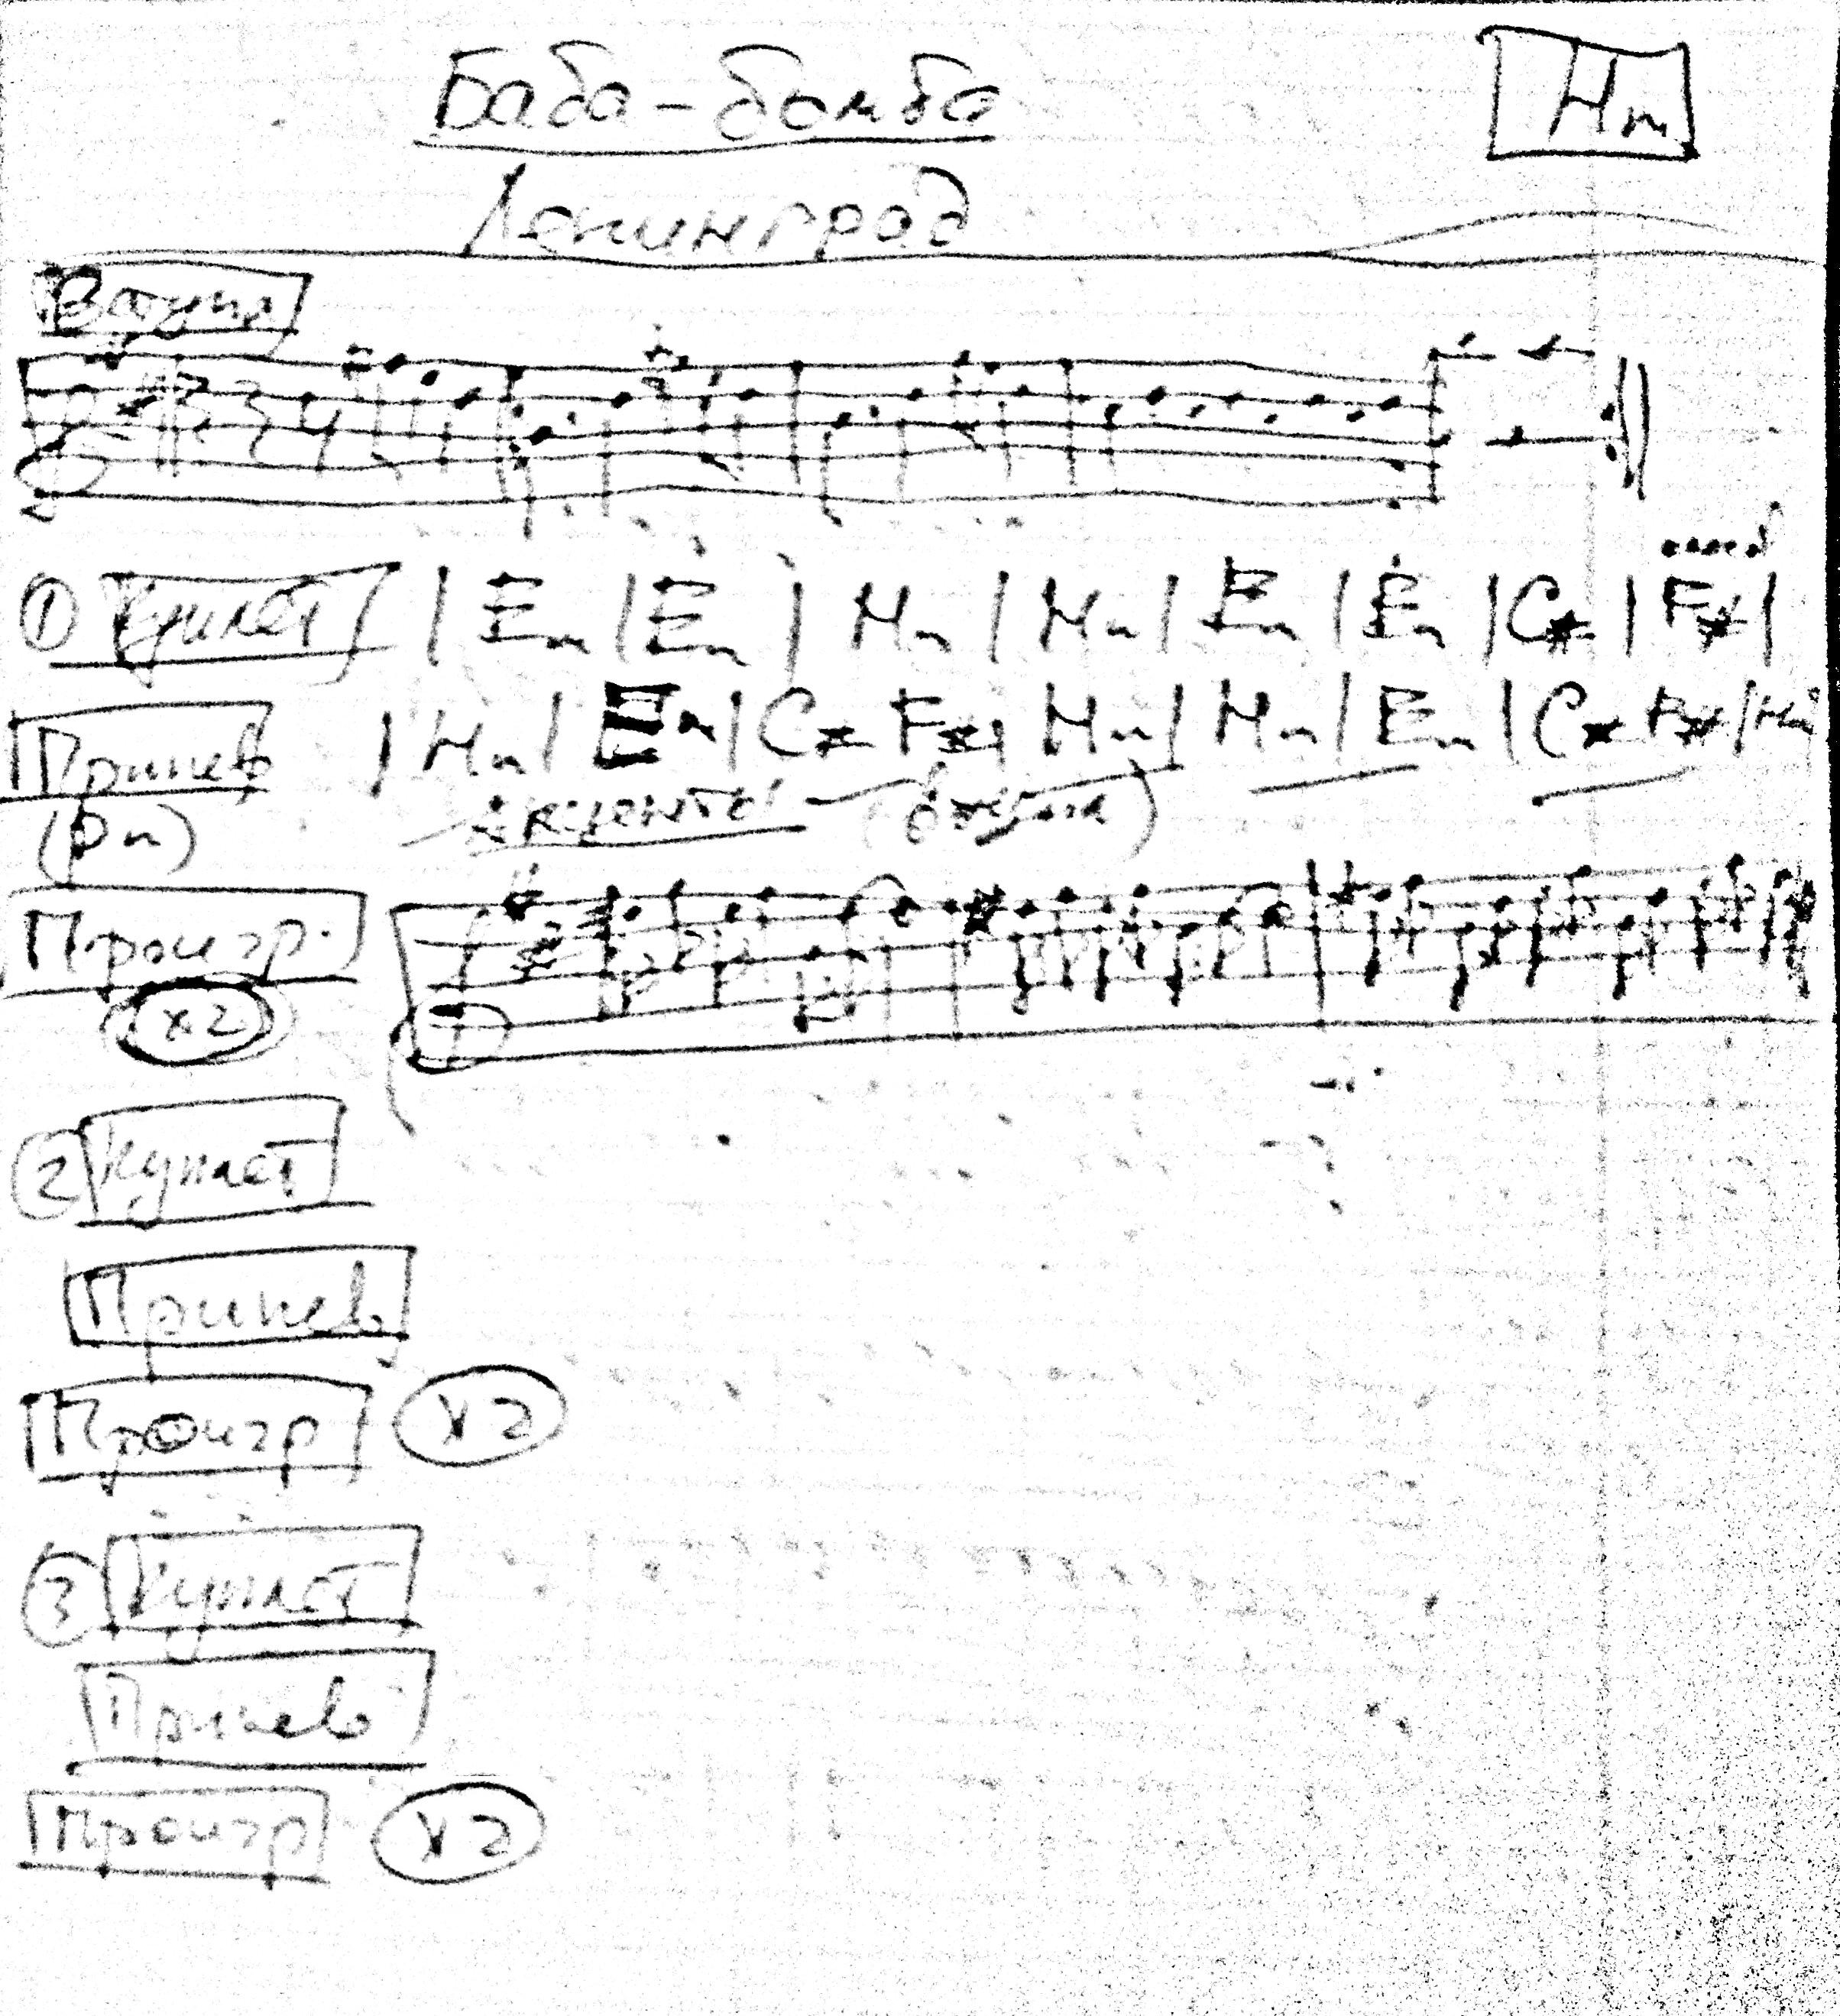 Баба-бомба
Hm
Ленинград
Вступл
① Куплет | Em | Em | Hm | Hm | Em | Em | C# | F# |
Припев | Hm | Em | C# F# | Hm | Hm | Em | C# F# | Hm
акценты
Проигр.
x2
② Куплет
Припев
Проигр x2
③ Куплет
Припев
Проигр x2